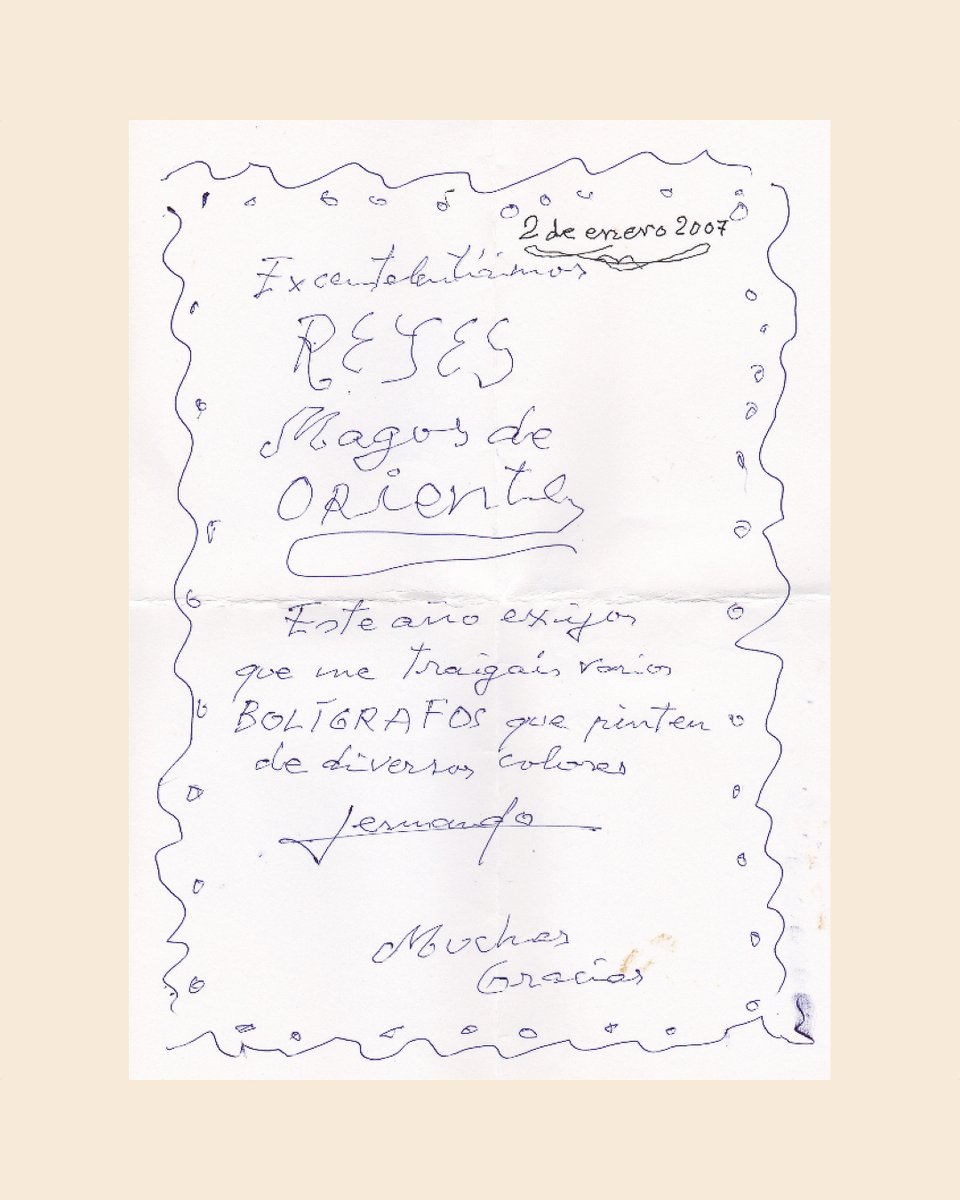 2 de enero 2007
Excentelentísimos
REYES
Magos de
ORiente
Este año exijos
que me traigais varios
BOLÍGRAFOS que pinten
de diversos colores
Fernando
Muchas
Gracias